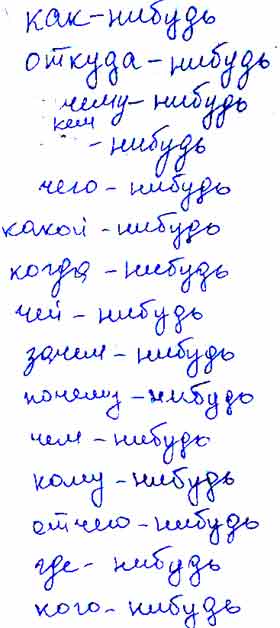 как-нибудь
откуда-нибудь
чему-нибудь
кем
-нибудь
чего-нибудь
какой-нибудь
когда-нибудь
чей-нибудь
зачем-нибудь
почему-нибудь
чем-нибудь
кому-нибудь
отчего-нибудь
где-нибудь
кого-нибудь